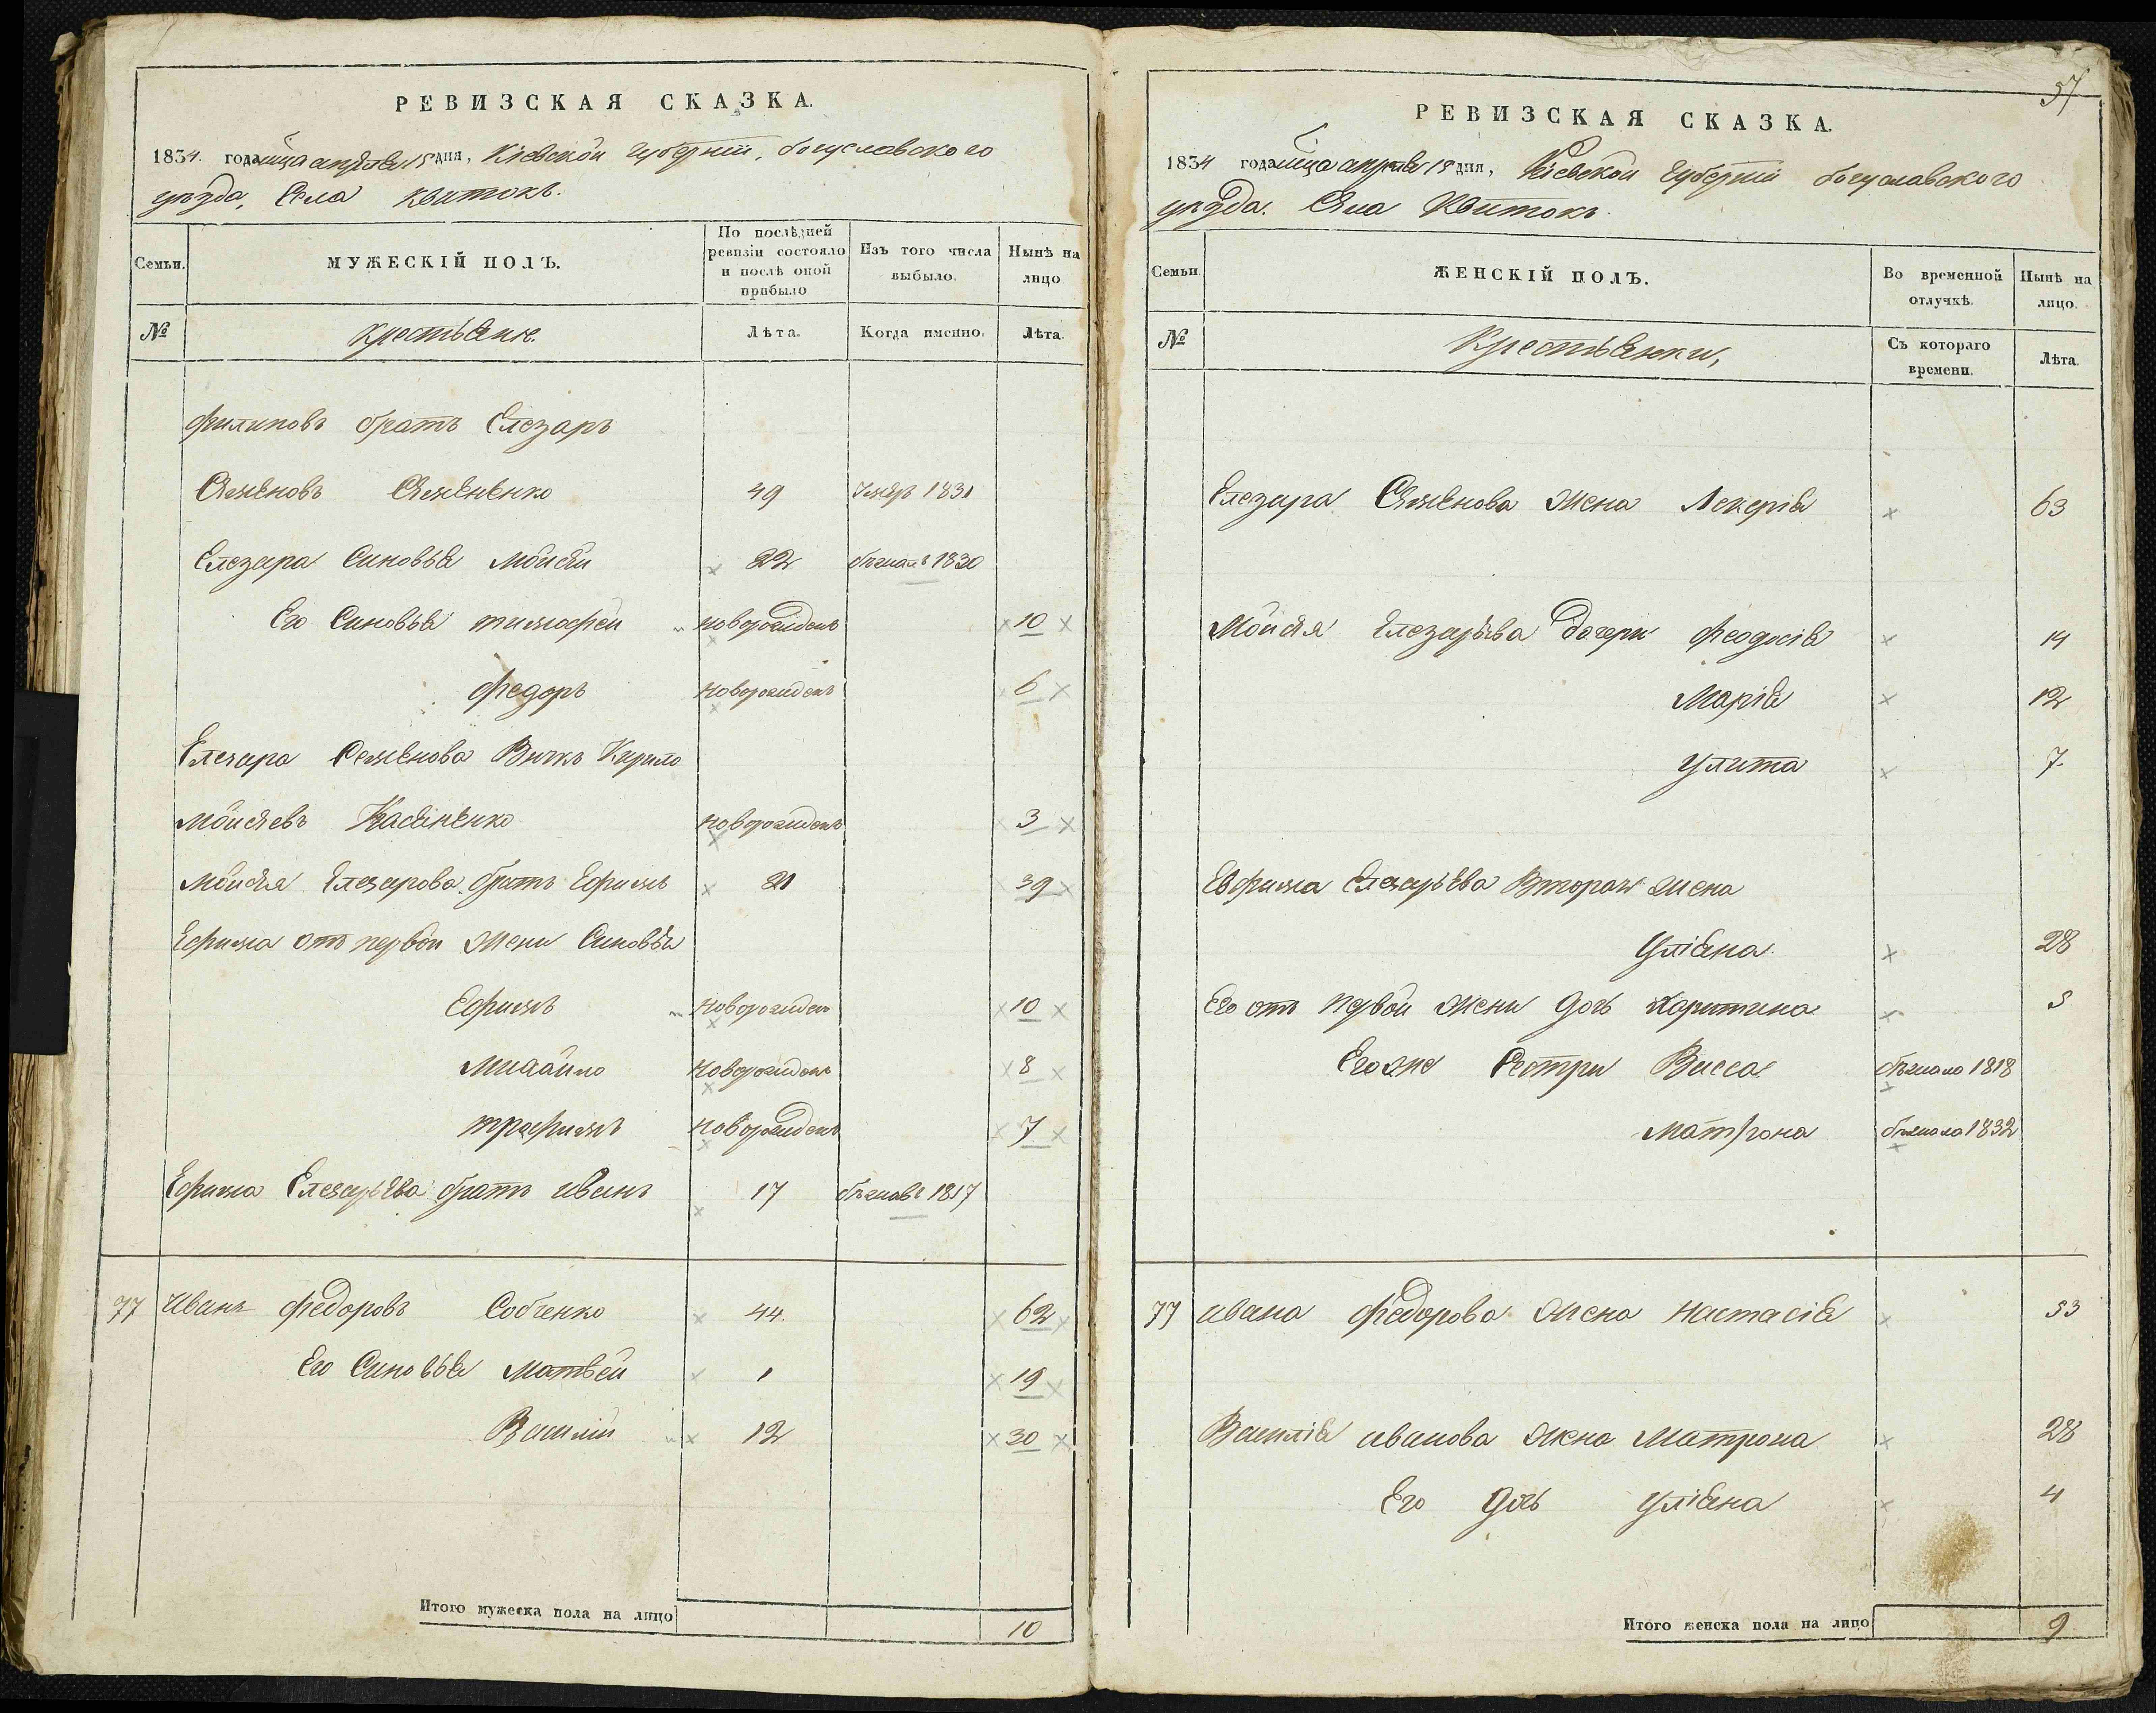 РЕВИЗСКАЯ СКАЗКА.
1834. года мца апреля 15 дня, Кіевской губерніи, богуславского
уезда, Села Квитокъ.
Семьи.
МУЖЕСКІЙ ПОЛЪ.
По послѣдней ревизіи состояло и послѣ оной прибыло
Изъ того числа выбыло.
Нынѣ на лицо
№
крестьяне.
Лѣта.
Когда именно.
Лѣта.
Филиповъ братъ Елезаръ
Семеновъ Семененко 49 1831
Елезара Синовья Мойсей 22 бежалъ 1830
Его Синовья тимофей новорожденъ 10
Федоръ новорожденъ 6
Елезара Семенова Внукъ Кирило
Мойсеевъ Касяненко новорожденъ 3
Мойсея Елезарова братъ Ефимъ 21 39
Ефима отъ первой жени Синовья
Ефимъ новорожденъ 10
Михайло новорожденъ 8
трофимъ новорожденъ 7
Ефима Елезарьева братъ иванъ 17 бежавъ 1817
77 Иванъ федоровъ Собченко 44. 62
Его Синовья Матвей 1 19
Василий 12 30
Итого мужеска пола на лицо 10
57
РЕВИЗСКАЯ СКАЗКА.
1834 года мца апреля 15 дня, Кіевской Губерніи богуславского
уезда. Села Квитокъ.
Семьи.
ЖЕНСКІЙ ПОЛЪ.
Во временной отлучкѣ.
Нынѣ на лицо.
№
Крестьянки,
Съ котораго времени.
Лѣта.
Елезара Семенова жена Лекерія 63
Мойсея Елезарьева дочери Феодосія 14
Марія 12
Улита 7.
Евфима Елезарьева Вторая жена
Уліяна. 28
Его отъ первой жени дочь Харитина 3
Его же Сестри Васса бежала 1818
Матрона бежала 1832
77 ивана Федорова жена настасія 53
Василія иванова жена Матрона 28
Его дочь Уліяна 4
Итого женска пола на лицо 9